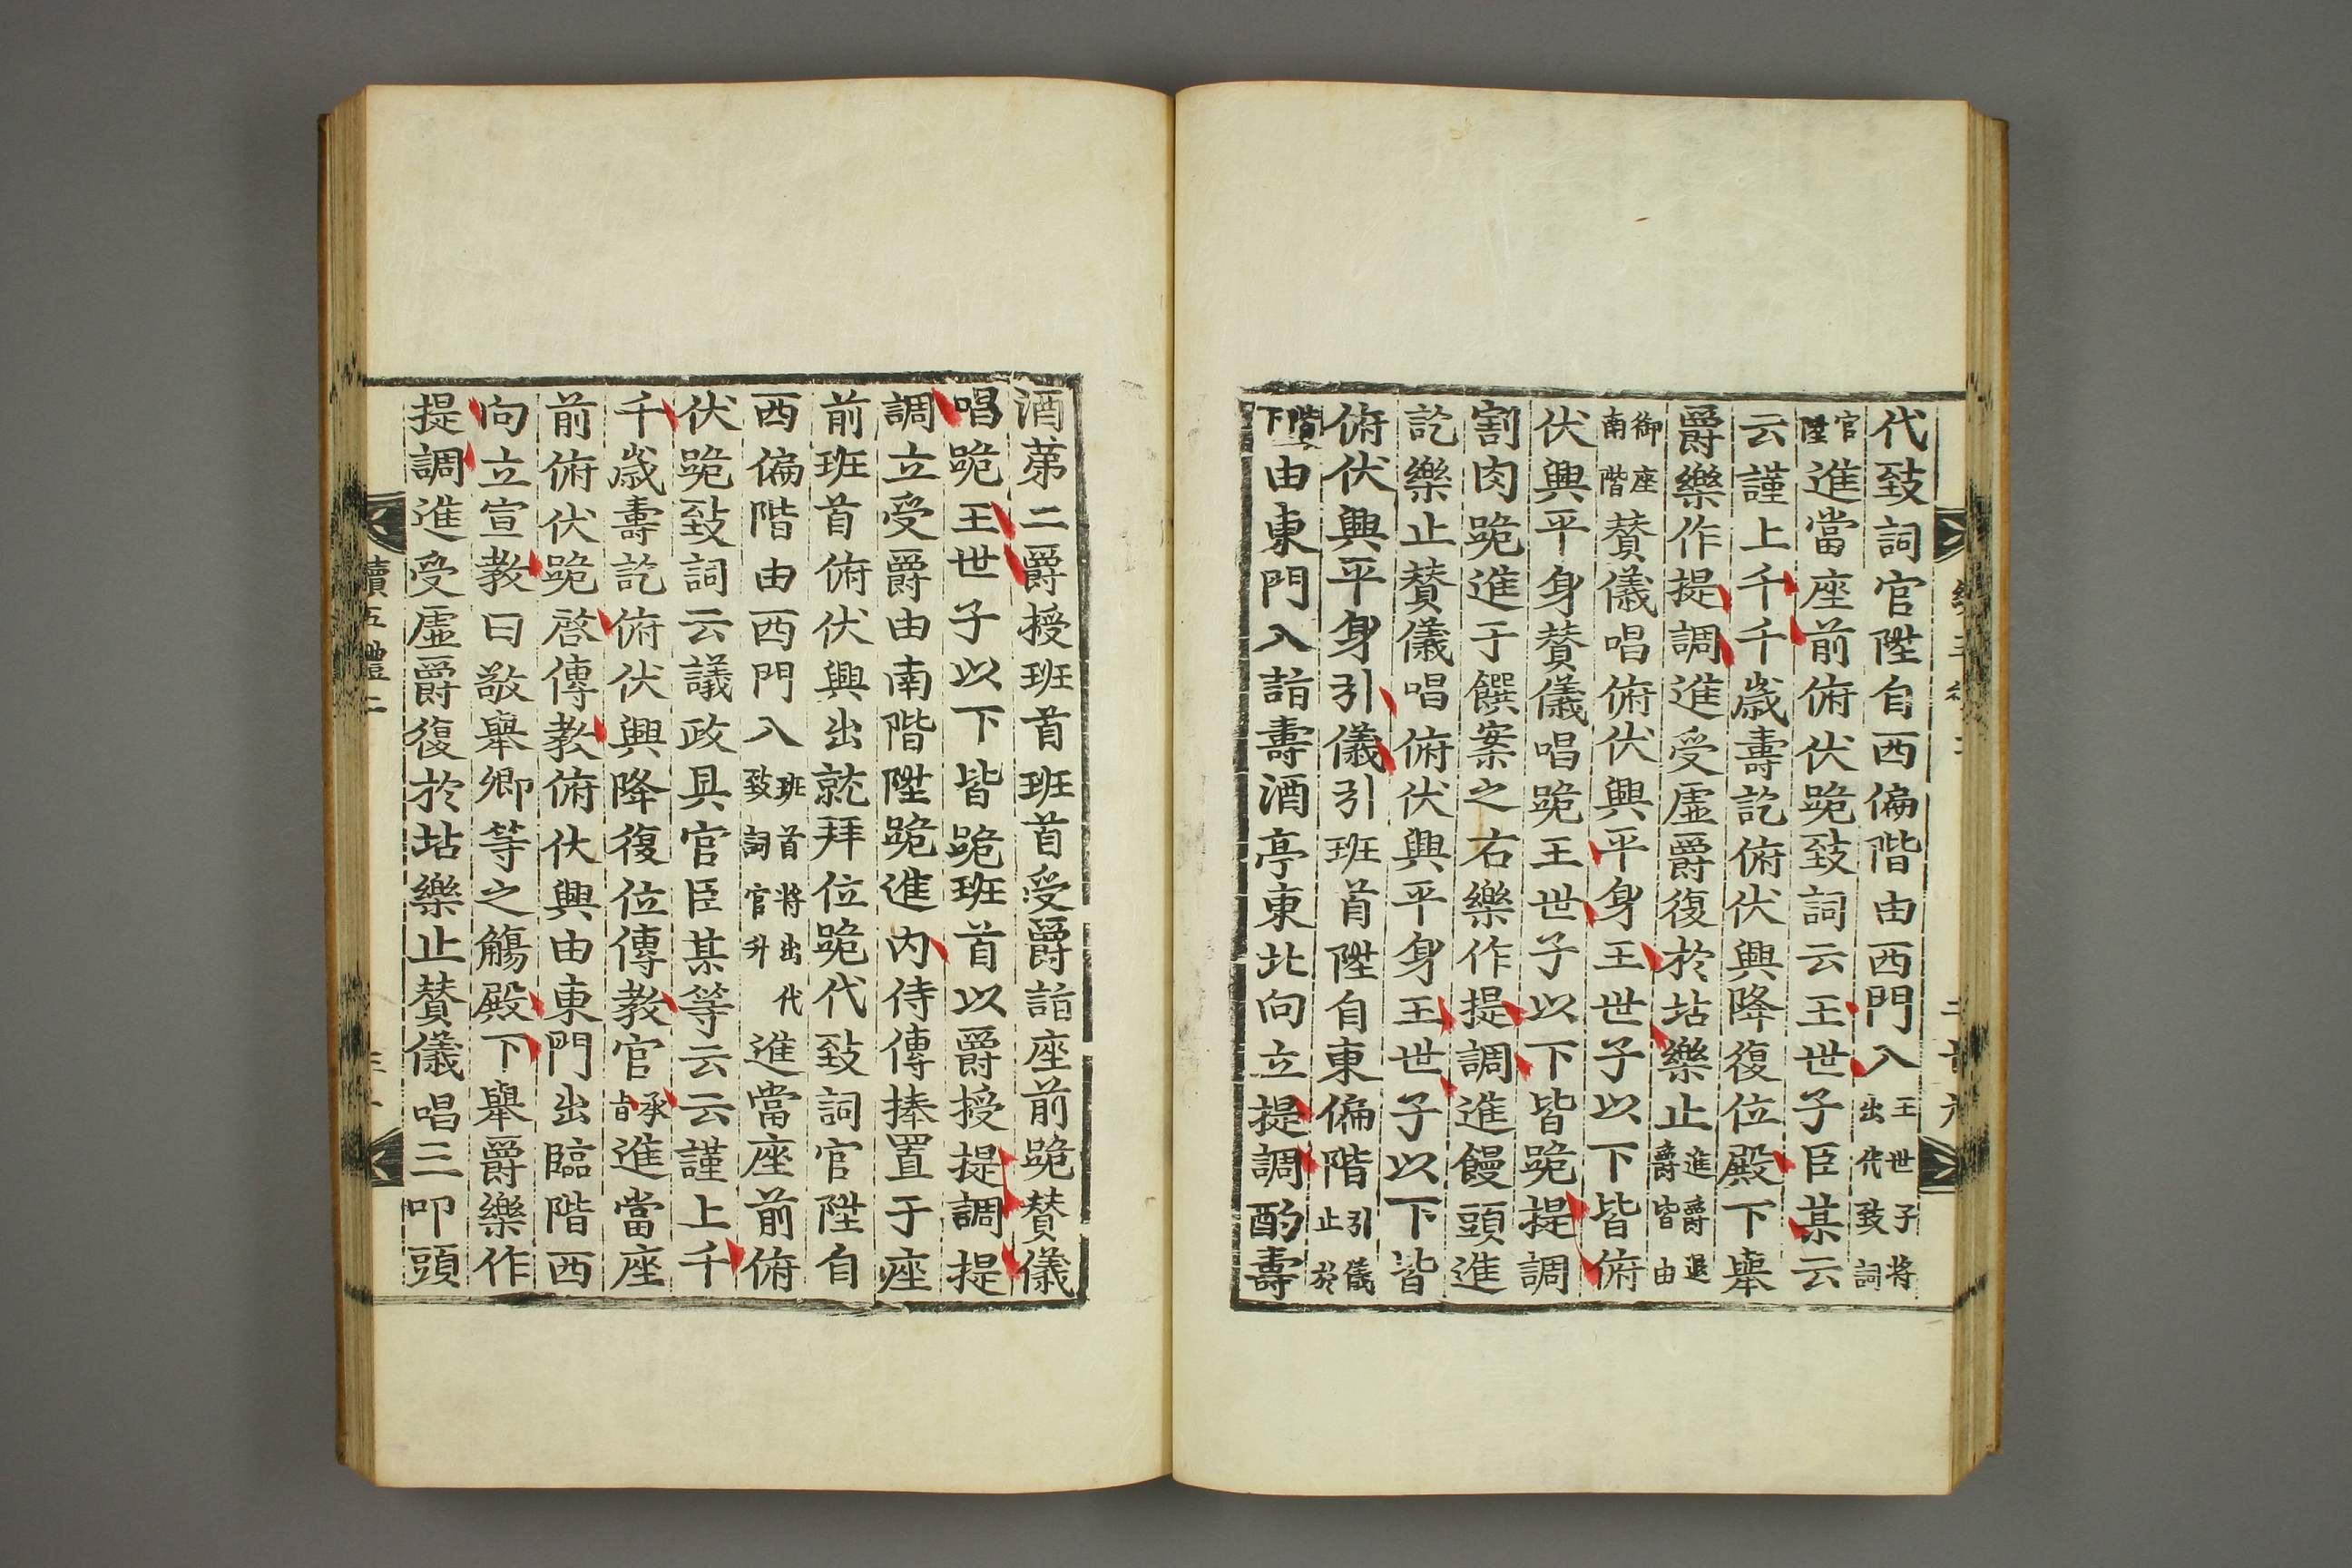 代致詞官陞自西偏階由西門入王世子將出代致詞
官陞進當座前俯伏跪致詞云王世子臣某云
云謹上千千歲壽訖俯伏興降復位殿下舉
爵樂作提調進受虛爵復於坫樂止進爵退爵皆由
御座南階贊儀唱俯伏興平身王世子以下皆俯
伏興平身贊儀唱跪王世子以下皆跪提調
割肉跪進于饌案之右樂作提調進饅頭進
訖樂止贊儀唱俯伏興平身王世子以下皆
俯伏興平身引儀引班首陞自東偏階引儀止於
階下由東門入詣壽酒亭東北向立提調酌壽
酒第二爵授班首班首受爵詣座前跪贊儀
唱跪王世子以下皆跪班首以爵授提調提
調立受爵由南階陞跪進內侍傳捧置于座
前班首俯伏興出就拜位跪代致詞官陞自
西偏階由西門入班首將出代致詞官升進當座前俯
伏跪致詞云議政具官臣某等云云謹上千
千歲壽訖俯伏興降復位傳教官承旨進當座
前俯伏跪啓傳教俯伏興由東門出臨階西
向立宣教曰敬舉卿等之觴殿下舉爵樂作
提調進受虛爵復於坫樂止贊儀唱三叩頭
續五禮二